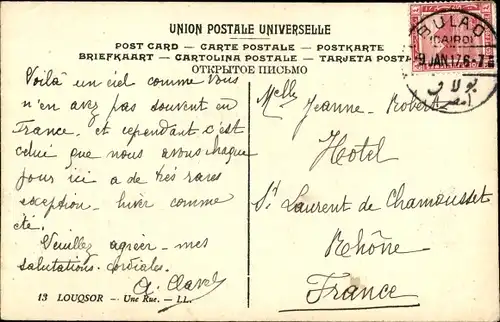 UNION POSTALE UNIVERSELLE
POST CARD – CARTE POSTALE – POSTKARTE
BRIEFKAART – CARTOLINA POSTALE – TARJETA POSTA
ОТКРЫТОЕ ПИСЬМО
BULAQ
(CAIRO)
9 JAN.17.6-7
بولاق
Voilà un ciel comme vous
n'en avez pas souvent en
France. et cependant c'est
celui que nous avons chaque
jour ici a de très rares
exception – hiver comme
été.
Veuillez agréer – mes
salutations cordiales.
A. Clavel
Melle Jeanne-Robert
Hotel
St Laurent de Chamousset
Rhône
France
13 LOUQSOR – Une Rue. – LL.